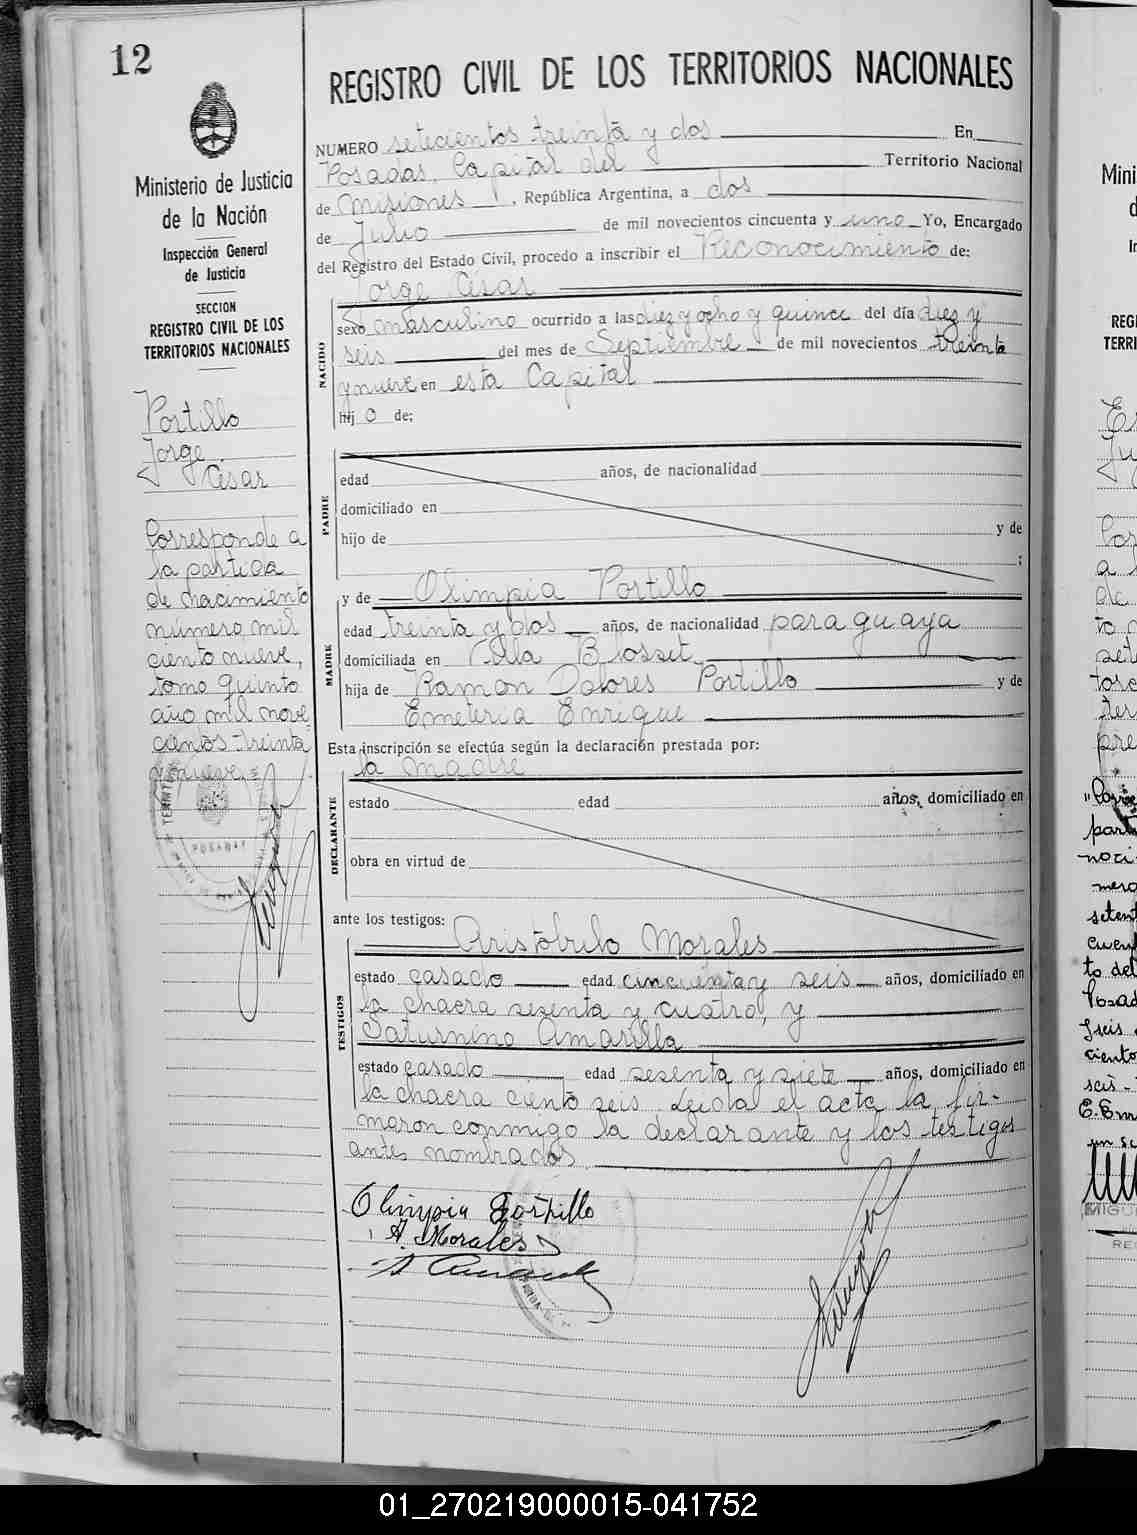 12
Ministerio de Justicia
de la Nación
Inspección General
de Justicia
SECCION
REGISTRO CIVIL DE LOS
TERRITORIOS NACIONALES
Portillo
Jorge
César
Corresponde a
la partida
de nacimiento
número mil
ciento nueve,
tomo quinto
año mil nove
cientos treinta
y nueve
POSADAS
REGISTRO CIVIL DE LOS TERRITORIOS NACIONALES
NUMERO setecientos treinta y dos En
Posadas, Capital del Territorio Nacional
de Misiones, República Argentina, a dos
de Julio de mil novecientos cincuenta y uno Yo, Encargado
del Registro del Estado Civil, procedo a inscribir el Reconocimiento de:
Jorge César
NACIDO
sexo masculino ocurrido a las diez y ocho y quince del día diez y
seis del mes de Septiembre de mil novecientos treinta
y nueve en esta Capital
hij o de;
PADRE
edad años, de nacionalidad
domiciliado en
hijo de y de
;
y de Olimpia Portillo
MADRE
edad treinta y dos años, de nacionalidad paraguaya
domiciliada en Villa Blosset
hija de Ramon Dolores Portillo y de
Emeteria Enrique
Esta inscripción se efectúa según la declaración prestada por:
la madre
DECLARANTE
estado edad años, domiciliado en
obra en virtud de
ante los testigos:
Aristóbulo Morales
TESTIGOS
estado casado edad cincuenta y seis años, domiciliado en
la chacra sesenta y cuatro, y
Saturnino Amarilla
estado casado edad sesenta y siete años, domiciliado en
la chacra ciento seis. Leída el acta la fir-
maron conmigo la declarante y los testigos
antes nombrados.
Olimpia Portillo
A. Morales
01_270219000015-041752